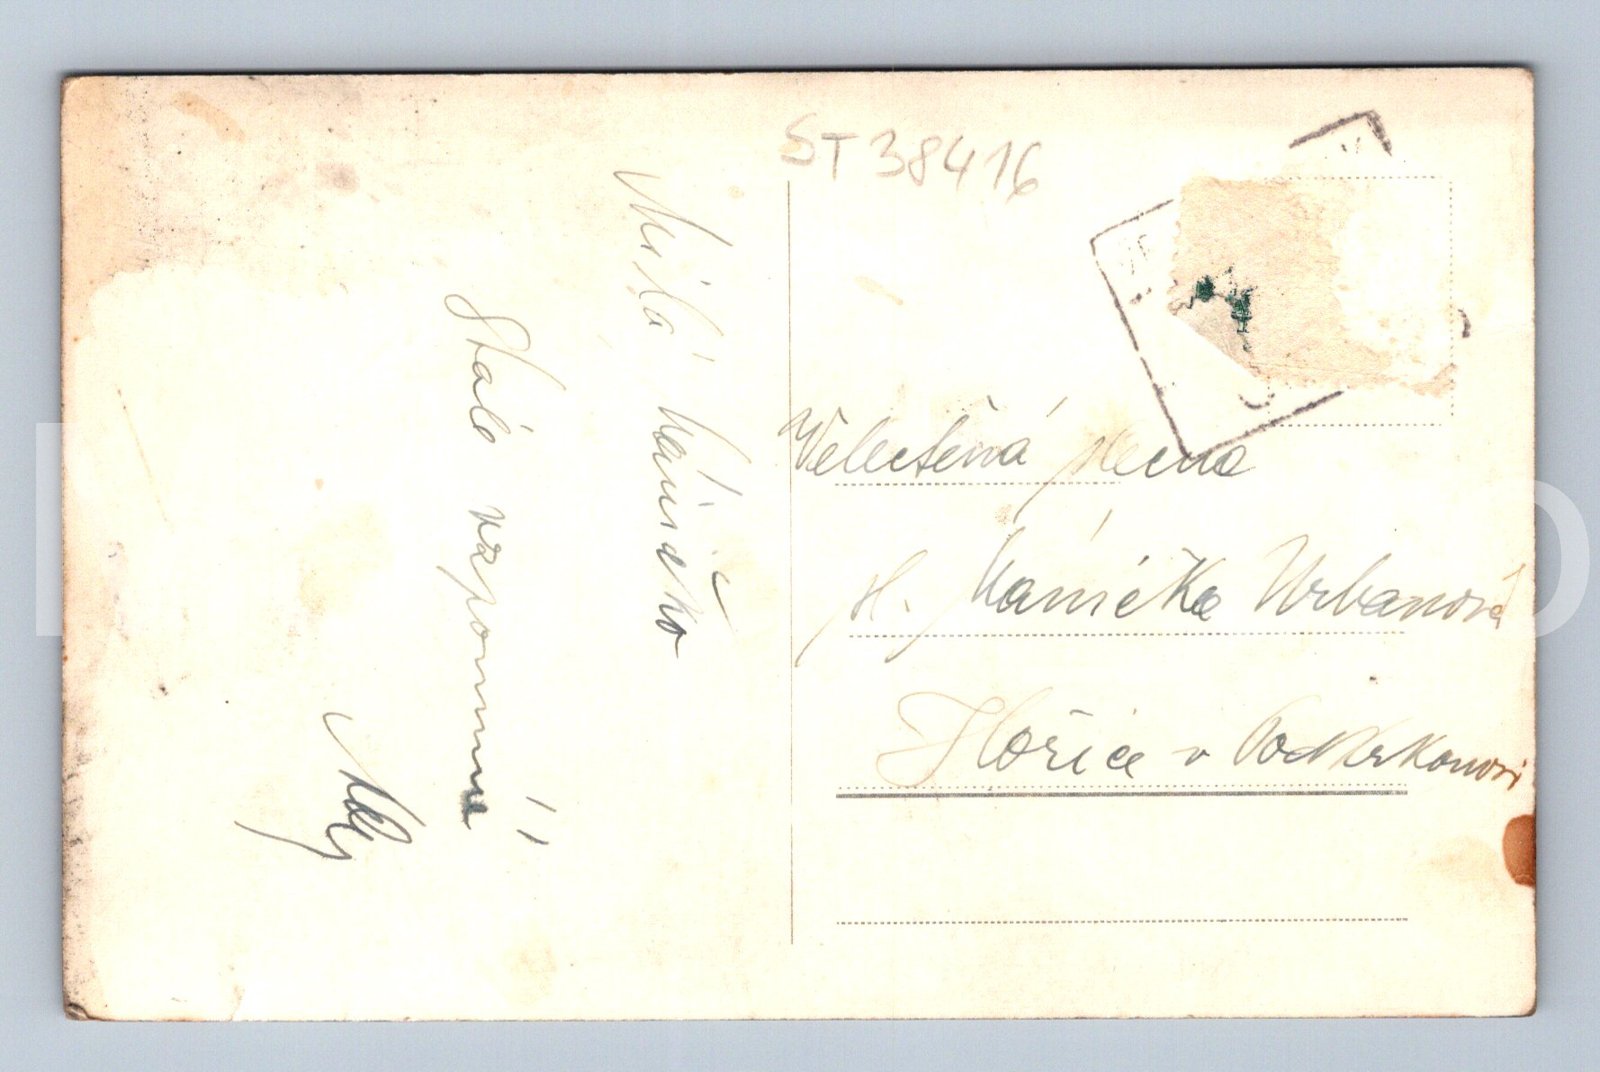 ST 38416
Milá Máničko
Stále vzpomíná
Velectěná slečna
sl. Mánička Urbanová
Hořice v Podkrkonoší